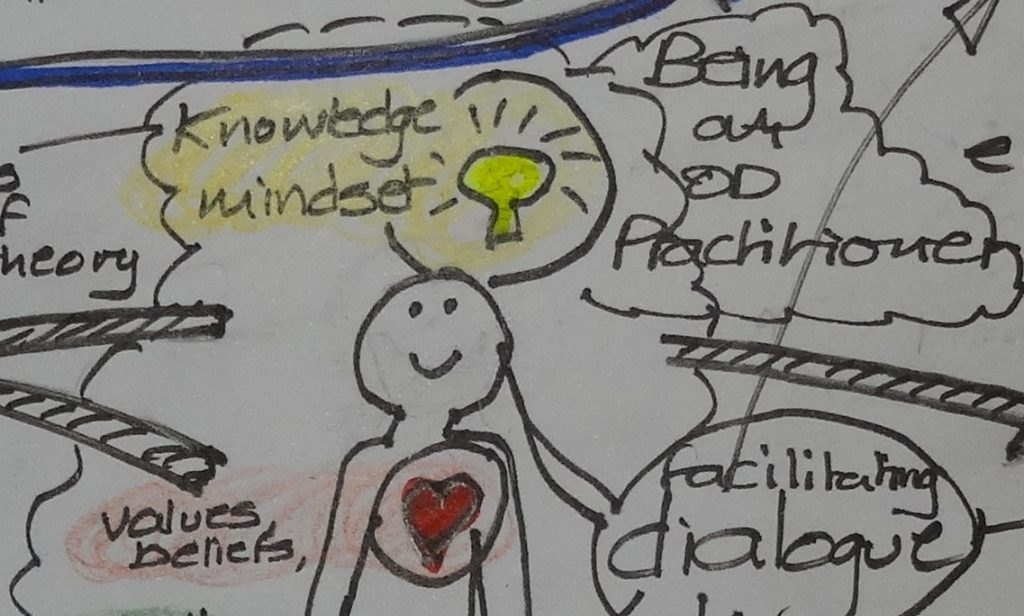 Knowledge
mindset
Being
an
OD
Practitioner
f
heory
e
values,
beliefs,
facilitating
dialogue